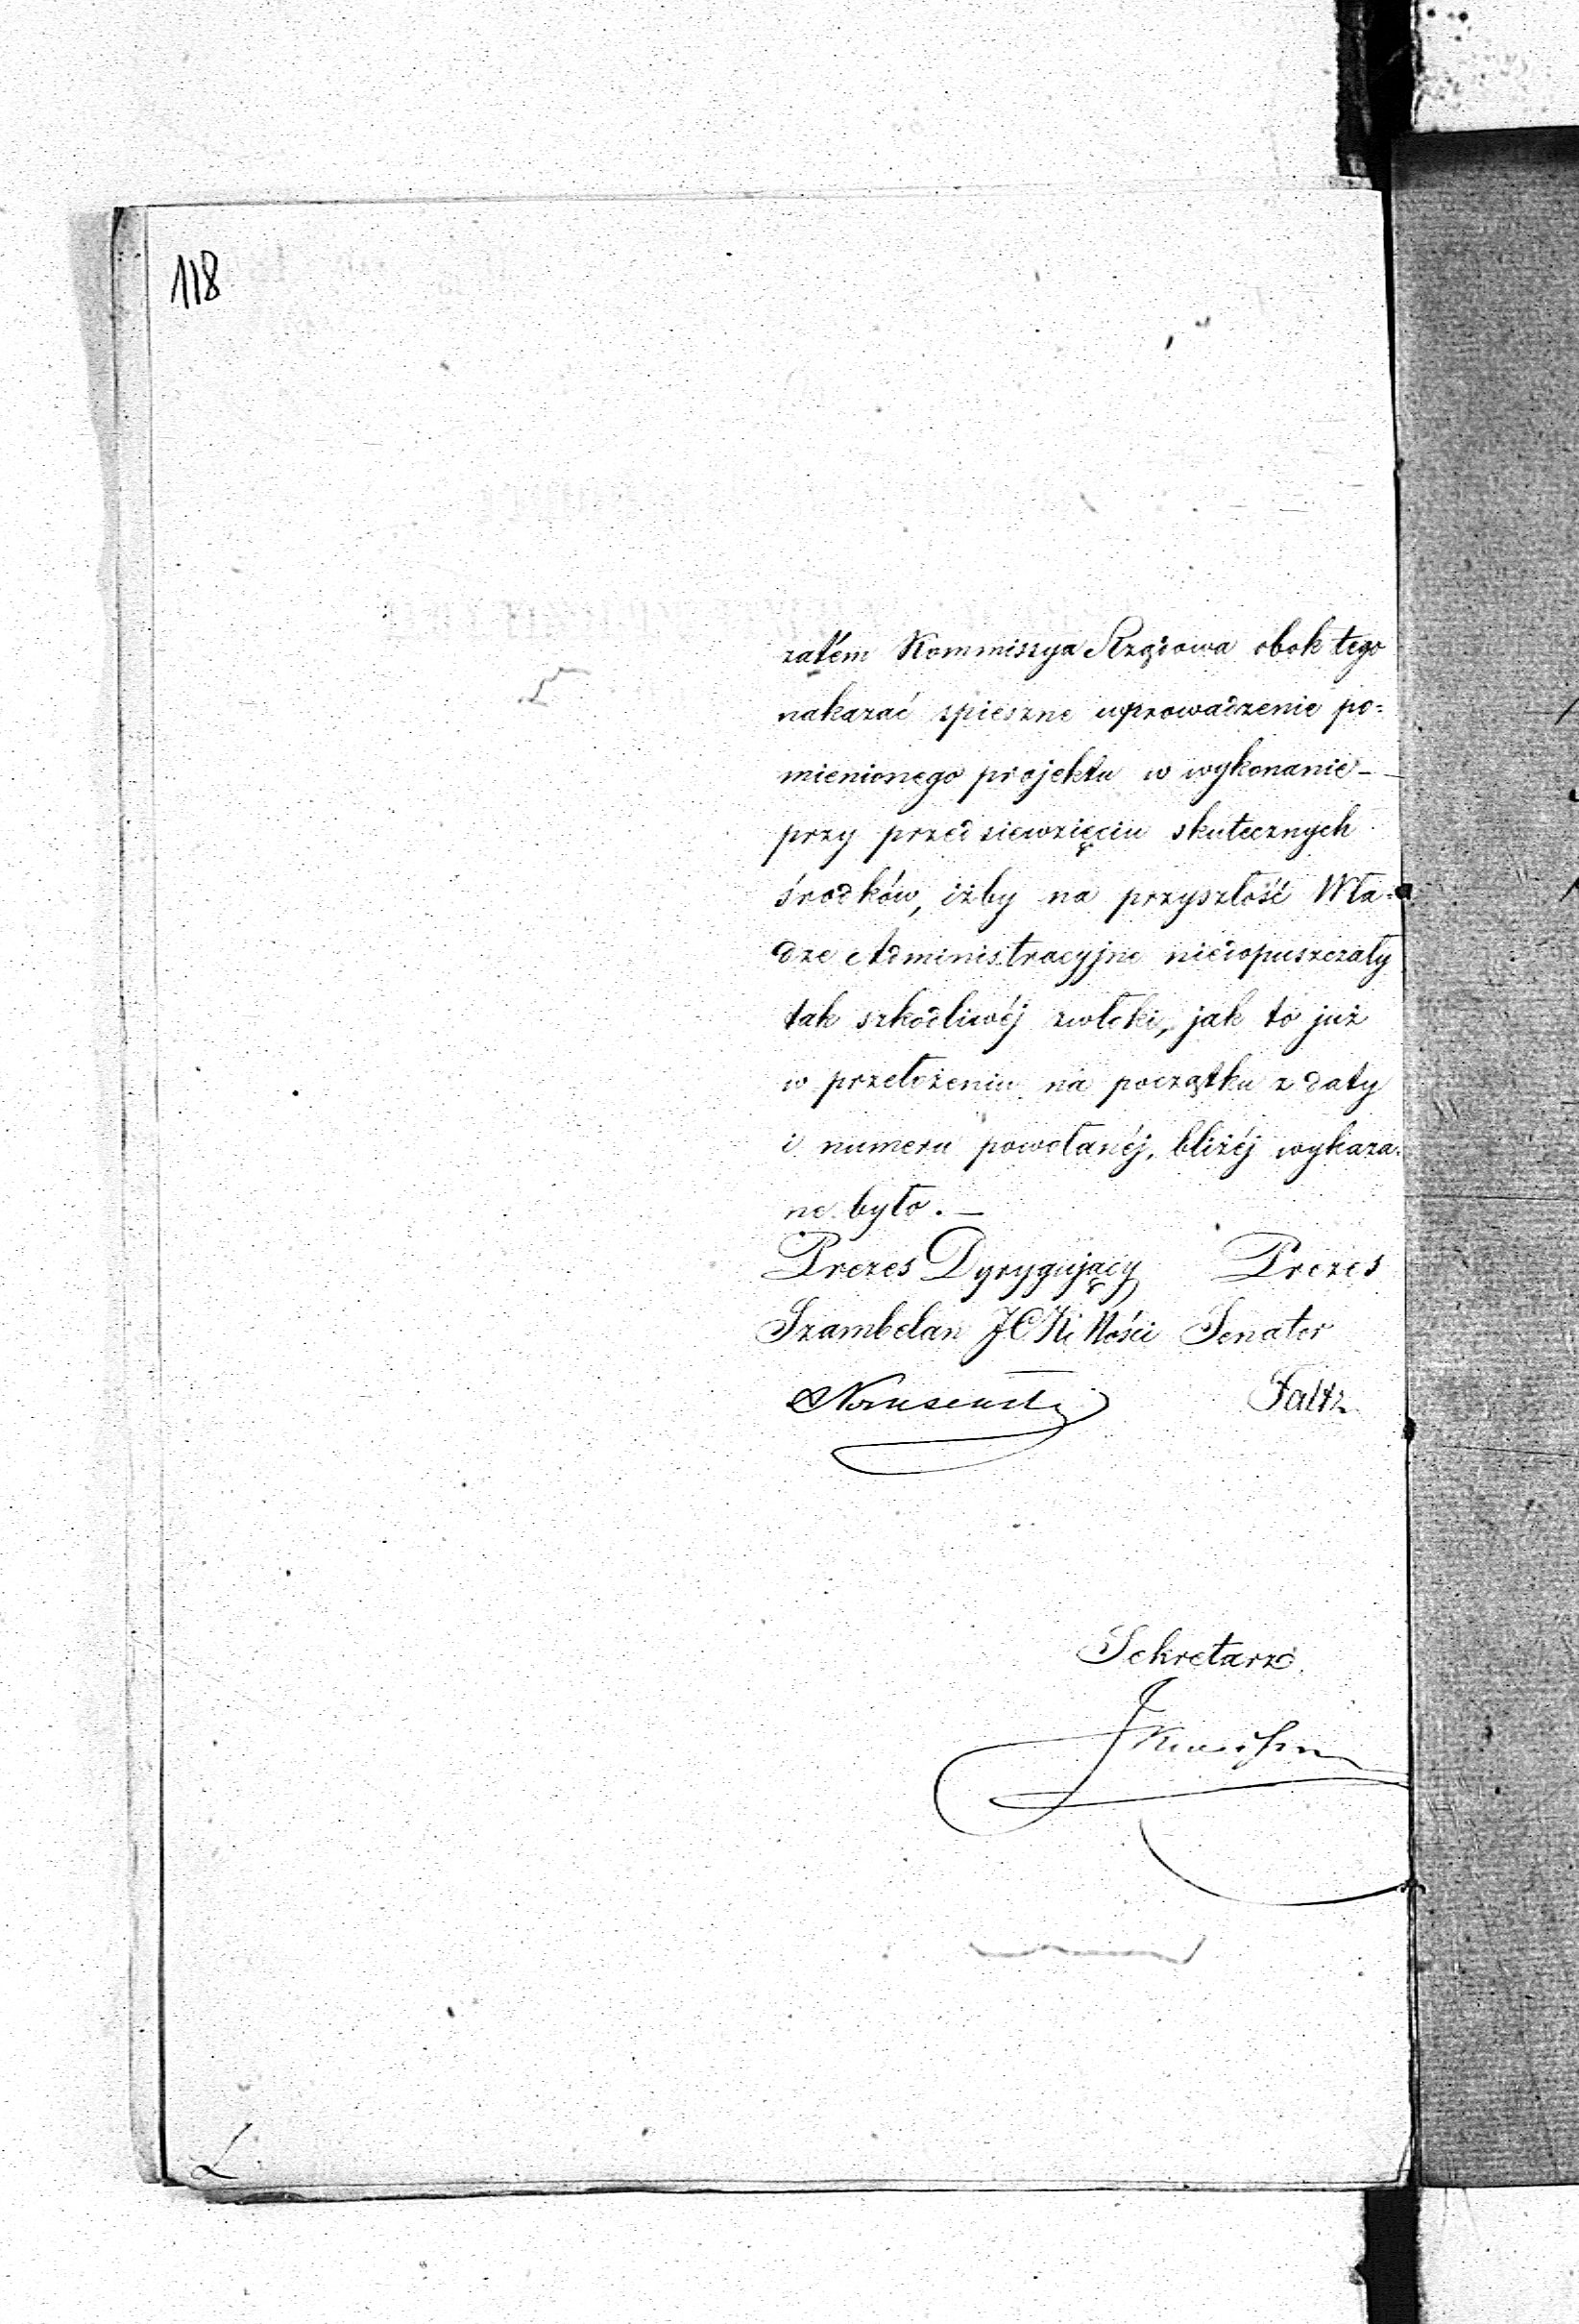 118
zatém Kommissya Rządowa obok tego
nakazać spieszne wprowadzenie po=
mienionego projektu w wykonanie –
przy przedsiewzięciu skutecznych
środków, iżby na przyszłość Wła=
dze Administracyjne niedopuszczały
tak szkodliwéj zwłoki, jak to już
w przełożeniu na początku z daty
i numeru powołanéj, bliżéj wykaza=
ne było. –
Prezes Dyrygujący Prezes
Szambelan JCK Mości Senator
Faltz
Sekretarz